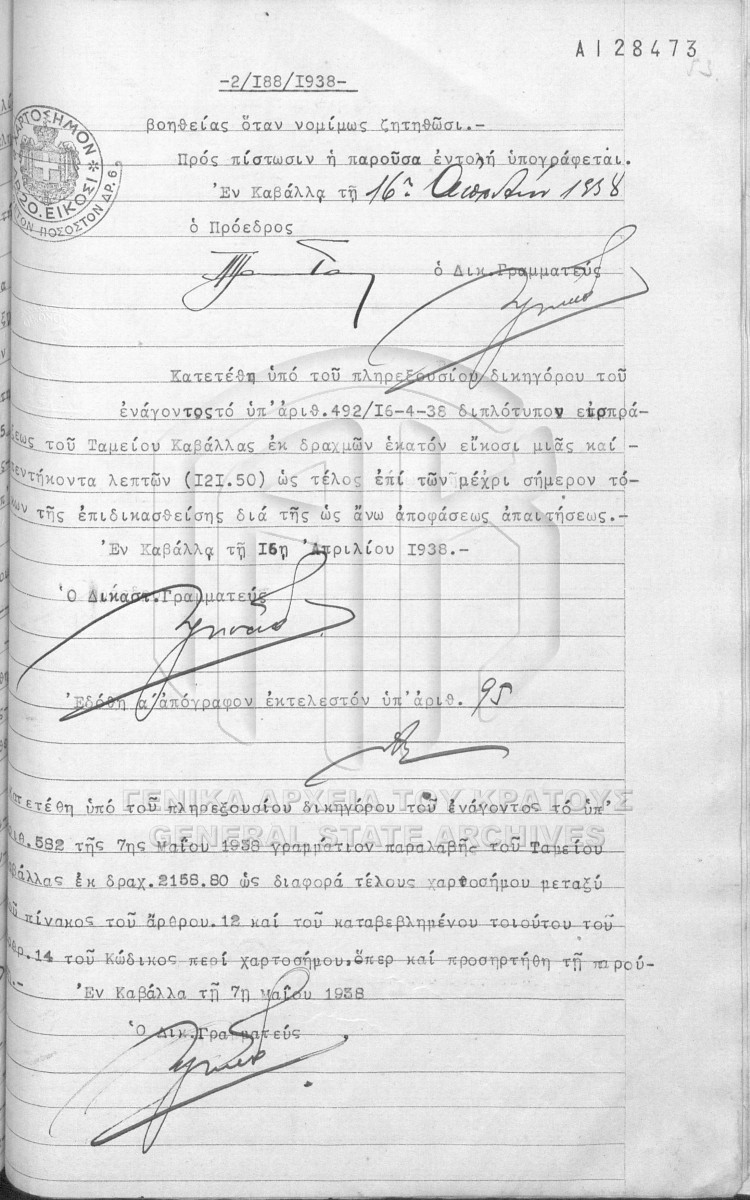 ΑΙ28473
-2/Ι88/Ι938-
ΧΑΡΤΟΣΗΜΟΝ
ΔΡ.20.ΕΙΚΟΣΙ
ΠΟΣΟΣΤΟΝ ΔΡ.6.
βοηθείας ὅταν νομίμως ζητηθῶσι.-
Πρός πίστωσιν ἡ παροῦσα ἐντολή ὑπογράφεται.
Ἐν Καβάλλᾳ τῇ 16ῃ Ἀπριλίου 1938
ὁ Πρόεδρος
ὁ Δικ.Γραμματεύς
Κατετέθη ὑπό τοῦ πληρεξουσίου δικηγόρου τοῦ
ἐνάγοντος τό ὑπ' ἀριθ.492/Ι6-4-38 διπλότυπον εἰσπρά-
εως τοῦ Ταμείου Καβάλλας ἐκ δραχμῶν ἑκατόν εἴκοσι μιᾶς καί -
πεντήκοντα λεπτῶν (Ι2Ι.50) ὡς τέλος ἐπί τῶν μέχρι σήμερον τό-
κων τῆς ἐπιδικασθείσης διά τῆς ὡς ἄνω ἀποφάσεως ἀπαιτήσεως.-
Ἐν Καβάλλᾳ τῇ Ι6ῃ Ἀπριλίου Ι938.-
Ὁ Δικαστ.Γραμματεύς
Ἐδόθη α' ἀπόγραφον ἐκτελεστόν ὑπ' ἀριθ. 95
Κατετέθη ὑπό τοῦ πληρεξουσίου δικηγόρου τοῦ ἐνάγοντος τό ὑπ'
ριθ.582 τῆς 7ης Μαΐου 1938 γραμμάτιον παραλαβῆς τοῦ Ταμείου
αβάλλας ἐκ δραχ.2158.80 ὡς διαφορά τέλους χαρτοσήμου μεταξύ
οῦ πίνακος τοῦ ἄρθρου.12 καί τοῦ καταβεβλημένου τοιούτου τοῦ
αρ.14 τοῦ Κώδικος περί χαρτοσήμου,ὅπερ καί προσηρτήθη τῇ παρού-
.-
Ἐν Καβάλλᾳ τῇ 7ῃ Μαΐου 1938
Ὁ Δικ.Γραμματεύς
ΓΕΝΙΚΑ ΑΡΧΕΙΑ ΤΟΥ ΚΡΑΤΟΥΣ
GENERAL STATE ARCHIVES